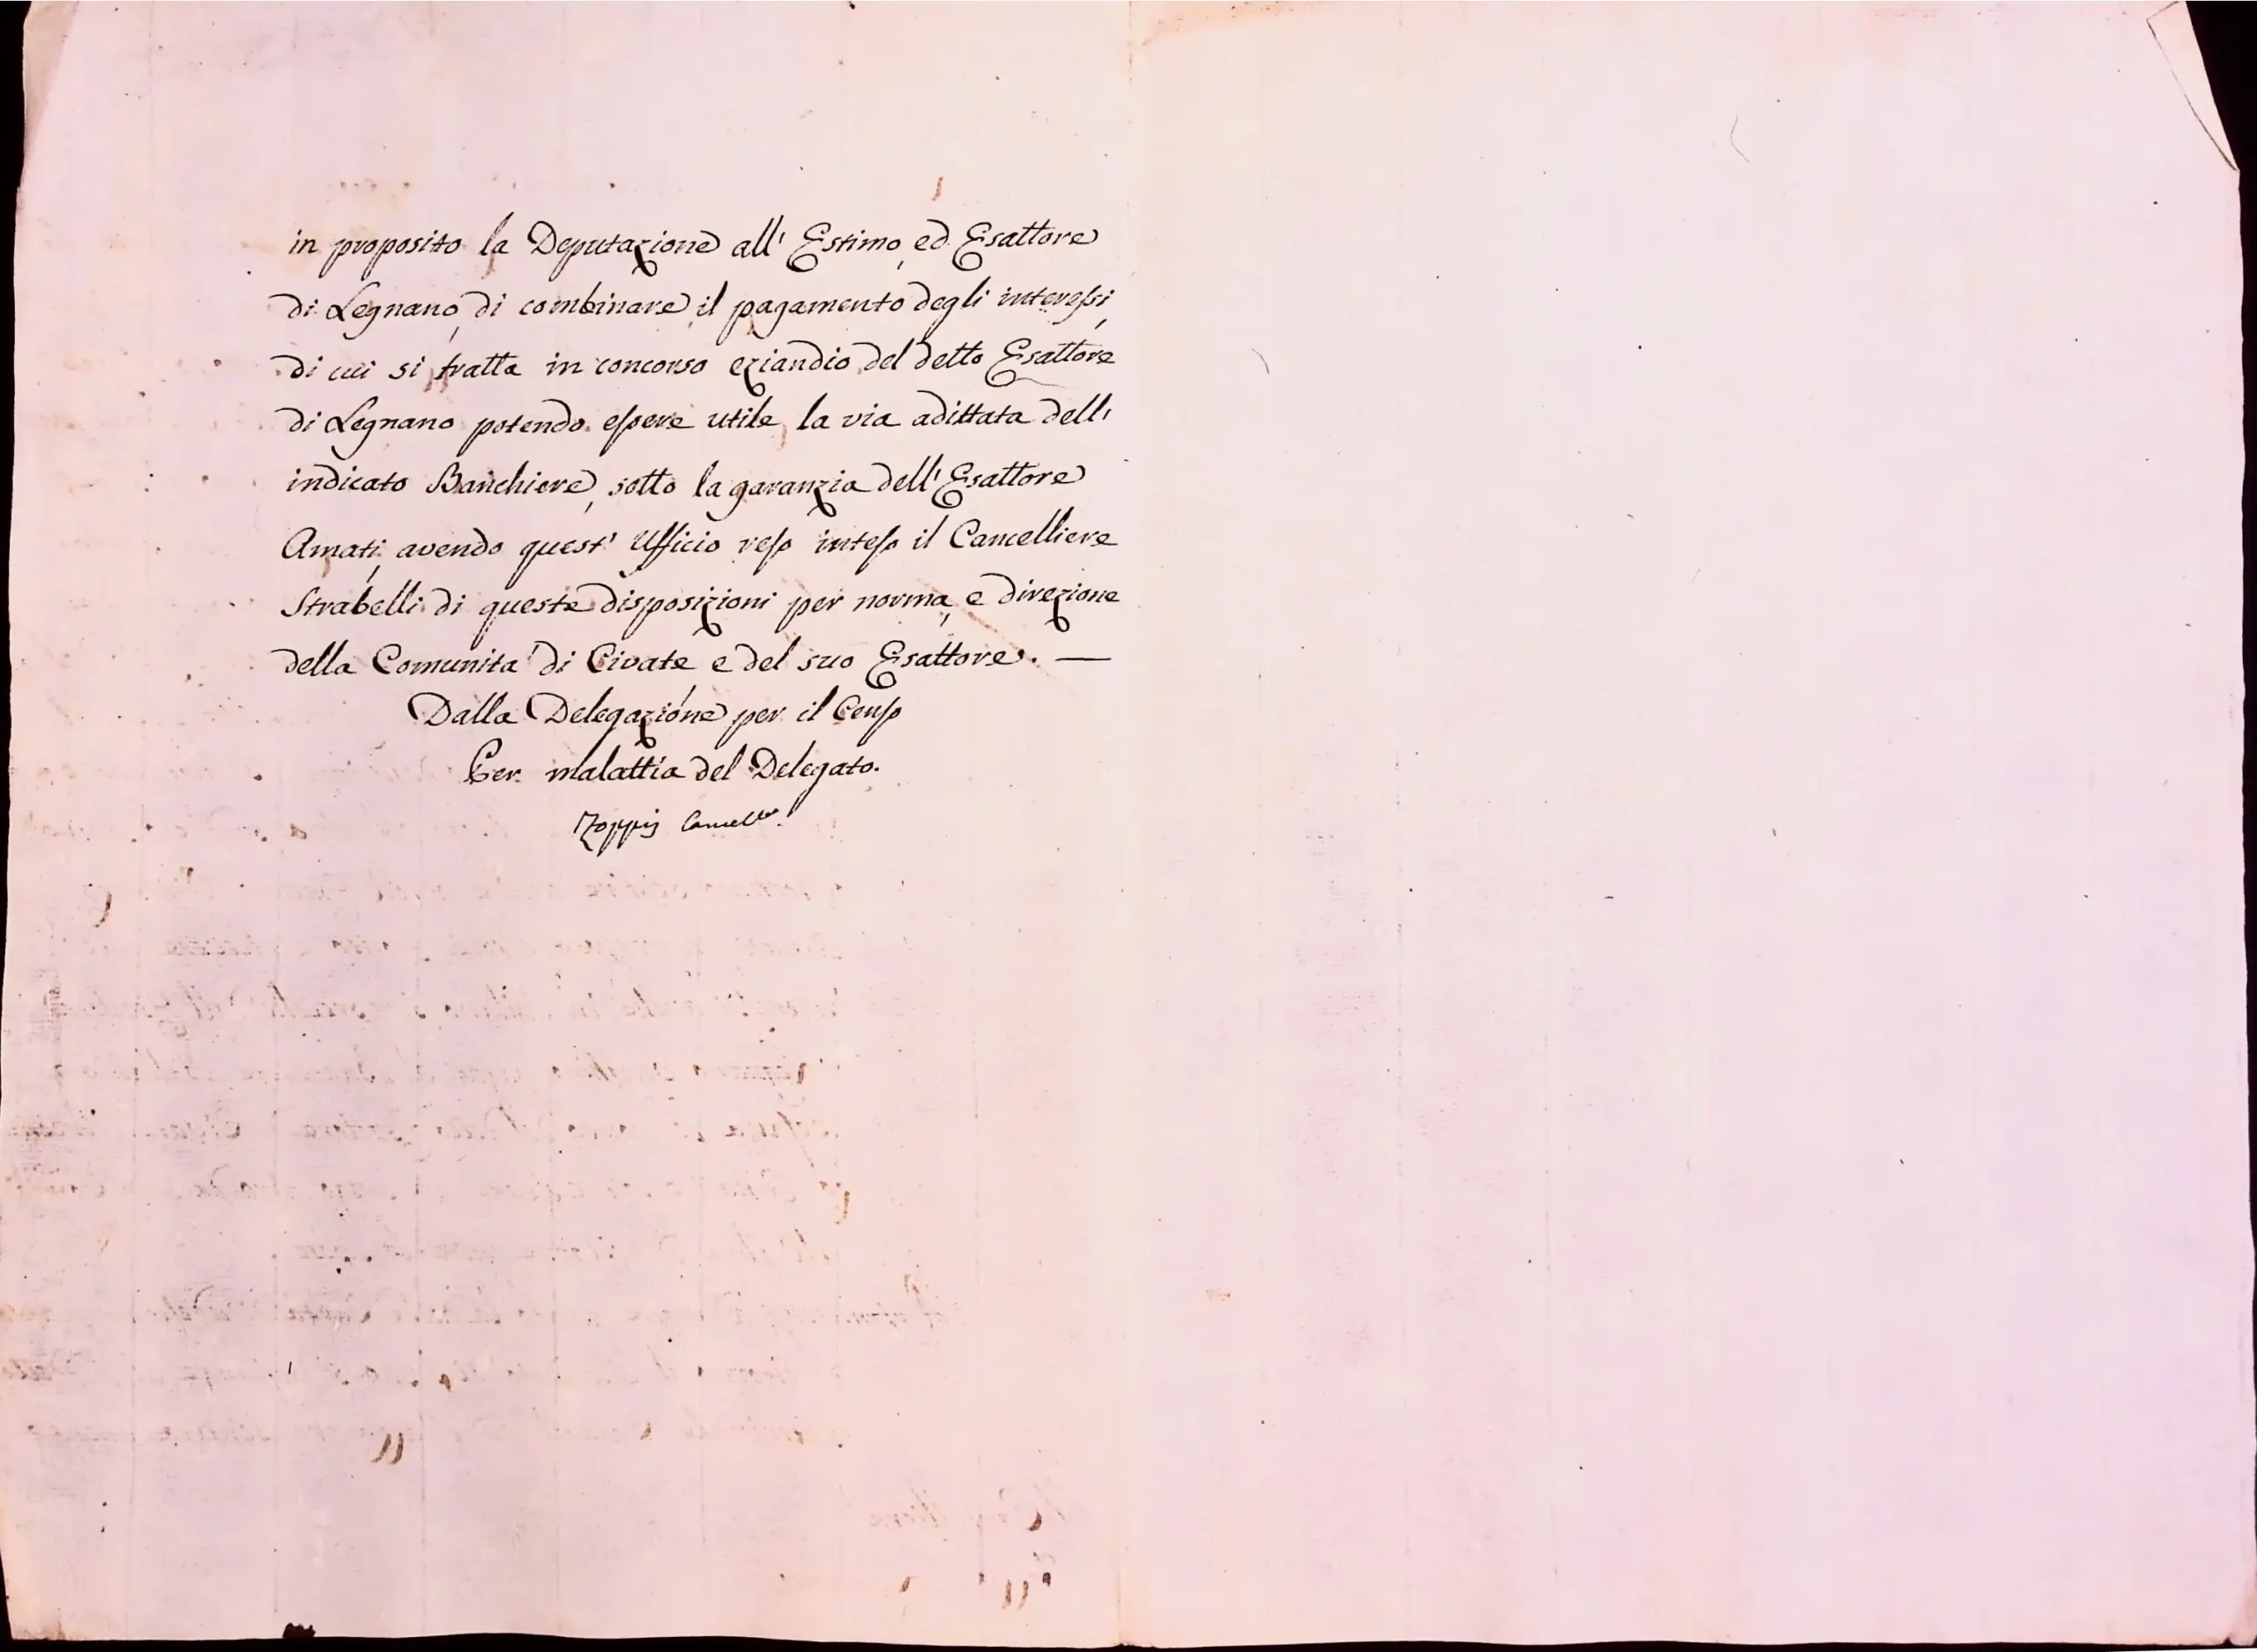 in proposito la Deputazione all' Estimo, ed Esattore
di Legnano, di combinare il pagamento degli interessi,
di cui si tratta in concorso eziandio del detto Esattore
di Legnano potendo essere utile la via adittata dell'
indicato Banchiere, sotto la garanzia dell' Esattore
Amati, avendo quest' Ufficio reso inteso il Cancelliere
Strabelli di queste disposizioni per norma, e direzione
della Comunita' di Civate, e del suo Esattore. —
Dalla Delegazione per il Censo
Per malattia del Delegato.
Zoppis Cancell.re